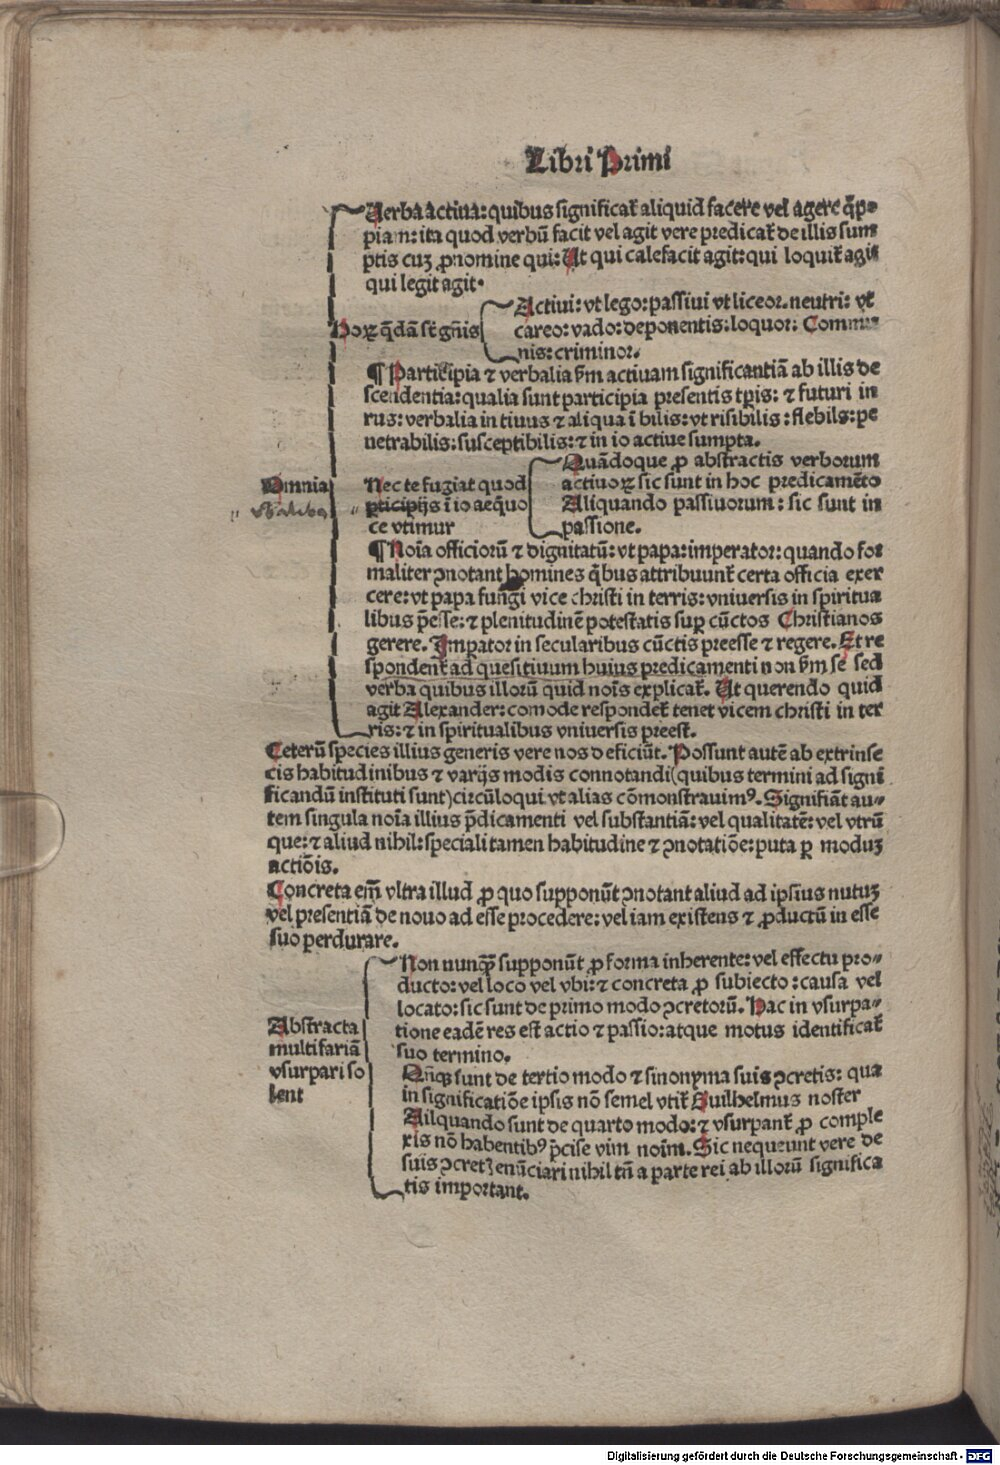 Libri Primi
Verba actiua: quibus significat̃ aliquid facere vel agere q̃p⸗
piam: ita quod verbũ facit vel agit vere predicat̃ de illis sum
ptis cuȝ ꝓnomine qui: Ut qui calefacit agit: qui loquit̃ agit
qui legit agit.
Hoꝝ q̃dã sũt gñis
Actiui: vt lego: passiui vt liceor. neutri: vt
careo: vado: deponentis: loquor: Commu⸗
nis: criminor.
¶ Participia ⁊ verbalia s̃m actiuam significantiã ab illis de
scendentia: qualia sunt participia presentis tp̃is: ⁊ futuri in
rus: verbalia in tiuus ⁊ aliqua ĩ bilis: vt risibilis: flebils: pe
netrabilis: susceptibilis: ⁊ in io actiue sumpta.
Omnia
Nec te fugiat quod
ꝑticipijs ĩ io aeq̃uo
ce vtimur
Quãdoque ꝓ abstractis verborum
actiuoꝝ sic sunt in hoc predicamẽto
Aliquando passiuorum: sic sunt in
passione.
¶ Noĩa officiorũ ⁊ dignitatũ: vt papa: imperator: quando for
maliter ꝯnotant homines q̃bus attribuunt̃ certa officia exer
cere: vt papa fungi vice christi in terris: vniuersis in spiritua
libus p̃esse: ⁊ plenitudinẽ potestatis suꝑ cũctos Christianos
gerere. Imꝑator in secularibus cũctis preesse ⁊ regere. Et re
spondent̃ ad quesitiuum huius predicamenti non s̃m se sed
verba quibus illorũ quid noĩs explicat̃. Ut querendo quid
agit Alexander: comode respondet̃ tenet vicem christi in ter
ris: ⁊ in spiritualibus vniuersis preest.
Ceterũ species illius generis vere nos deficiũt. Possunt autẽ ab extrinse
cis habitudinibus ⁊ varijs modis connotandi (quibus termini ad signi
ficandũ instituti sunt) circũloqui vt alias cõmonstrauimꝰ. Signifiãt au⸗
tem singula noĩa illius p̃dicamenti vel substantiã: vel qualitatẽ: vel vtrũ
que: ⁊ aliud nihil: speciali tamen habitudine ⁊ ꝯnotatiõe: puta ꝑ moduȝ
actiõis.
Concreta em̃ vltra illud ꝓ quo supponũt ꝯnotant aliud ad ipsius nutuȝ
vel presentiã de nouo ad esse procedere: vel iam existens ⁊ ꝓductũ in esse
suo perdurare.
Abstracta
multifariã
vsurpari so
lent
Non nunq̃ȝ supponũt ꝓ forma inherente: vel effectu pro⸗
ducto: vel loco vel vbi: ⁊ concreta ꝓ subiecto: causa vel
locato: sic sunt de primo modo ꝯcretorũ. Hac in vsurpa⸗
tione eadẽ res est actio ⁊ passio: atque motus identificat̃
suo termino.
Qñqȝ sunt de tertio modo ⁊ sinonyma suis ꝯcretis: qua
in significatiõe ipsis nõ semel vtit̃ Guilhelmus noster
Ailquando sunt de quarto modo: ⁊ vsurpant̃ ꝓ comple
xis nõ habentibꝰ p̃cise vim noĩm. Sic nequeunt vere de
suis ꝯcret̃ enũciari nihil tñ a parte rei ab illorũ significa
tis important.
Digitalisierung gefördert durch die Deutsche Forschungsgemeinschaft - DFG